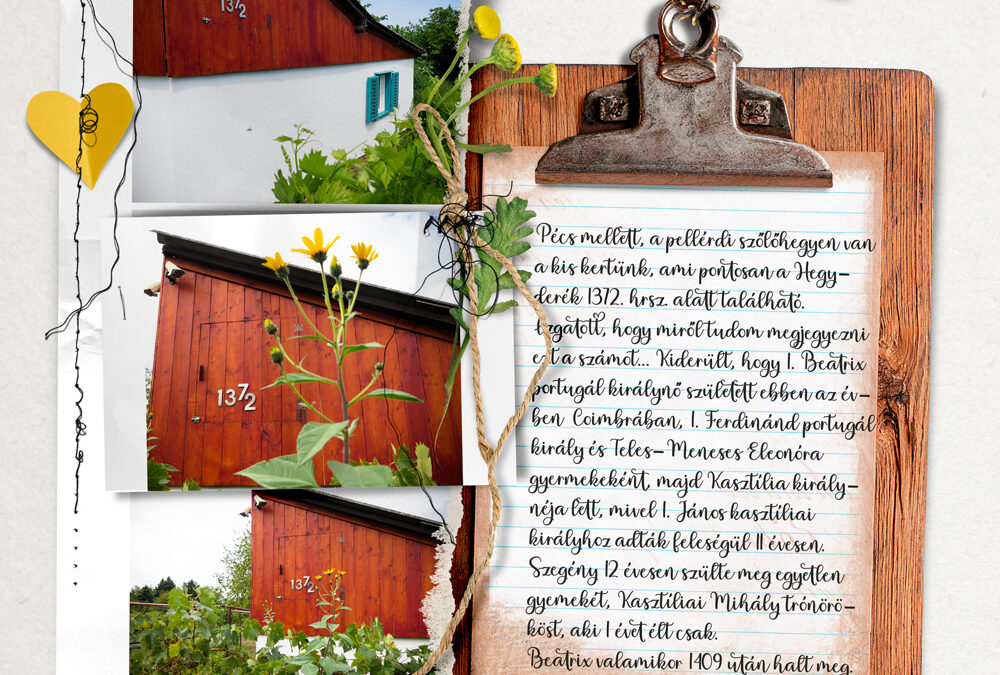 1372
1372
1372
Pécs mellett, a pellérdi szőlőhegyen van
a kis kertünk, ami pontosan a Hegy-
derék 1372. hrsz. alatt található.
Izgatott, hogy miről tudom megjegyezni
ezt a számot... Kiderült, hogy I. Beatrix
portugál királynő született ebben az év-
ben Coimbrában, I. Ferdinánd portugál
király és Teles- Meneses Eleonóra
gyermekeként, majd Kasztília király-
néja lett, mivel I. János kasztíliai
királyhoz adták feleségül 11 évesen.
Szegény 12 évesen szülte meg egyetlen
gyemekét, Kasztíliai Mihály trónörö-
köst, aki 1 évet élt csak.
Beatrix valamikor 1409 után halt meg.